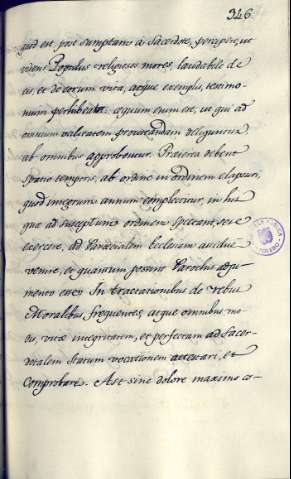 346
quid est, post sumptam à Sacerdote, percipere, ut
videns Populus religiosos mores, laudabile de
eis, et de eorum vita, atque exemplis, testimo-
nium perhibeat: æquum enim est, ut qui ad
omnium salutem procurandam deliguntur
ab omnibus approbentur. Præterea debent
spatio temporis, ab ordine in ordinem elapsuri,
quod integrum annum complectitur, in his
quæ ad susceptum ordinem spectant, se se
exercere, ad Parœcialem Ecclesiam assidue
venire, et quantum possint Parocho adju-
mento esse; In tractationibus de rebus
Moralibus frequentes, atque omnibus mo-
dis, vitæ integritatem, et perfectam ad Sacer-
dotalem statum vocationem attestari, et
Comprobare. Ast sine dolore maximo co-